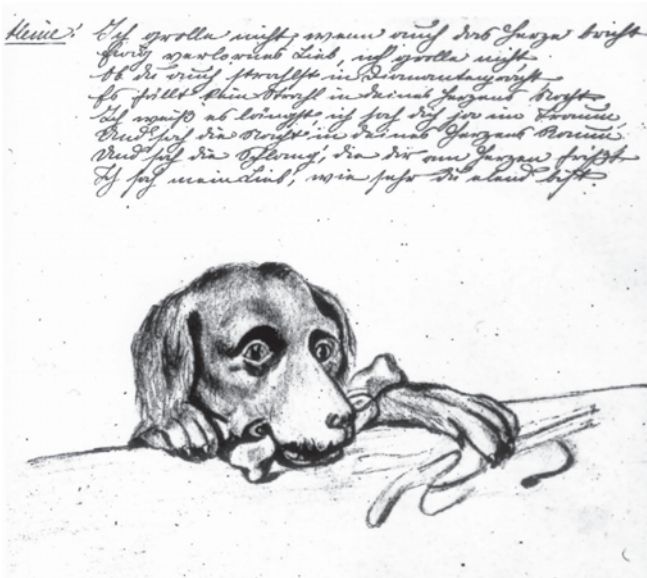 Heine: Ich grolle nicht, wenn auch das Herze bricht
Ewig verlornes Lieb, ich grolle nicht
Ob du auch strahlst in Diamantenpracht
Es fällt kein Strahl in deines Herzens Nacht
Ich weiß es längst, ich sah dich ja im Traum
Und sah die Nacht in deines Herzens Raum
Und sah die Schlang', die dir am Herzen frißt
Ich sah mein Lieb, wie sehr du elend bist